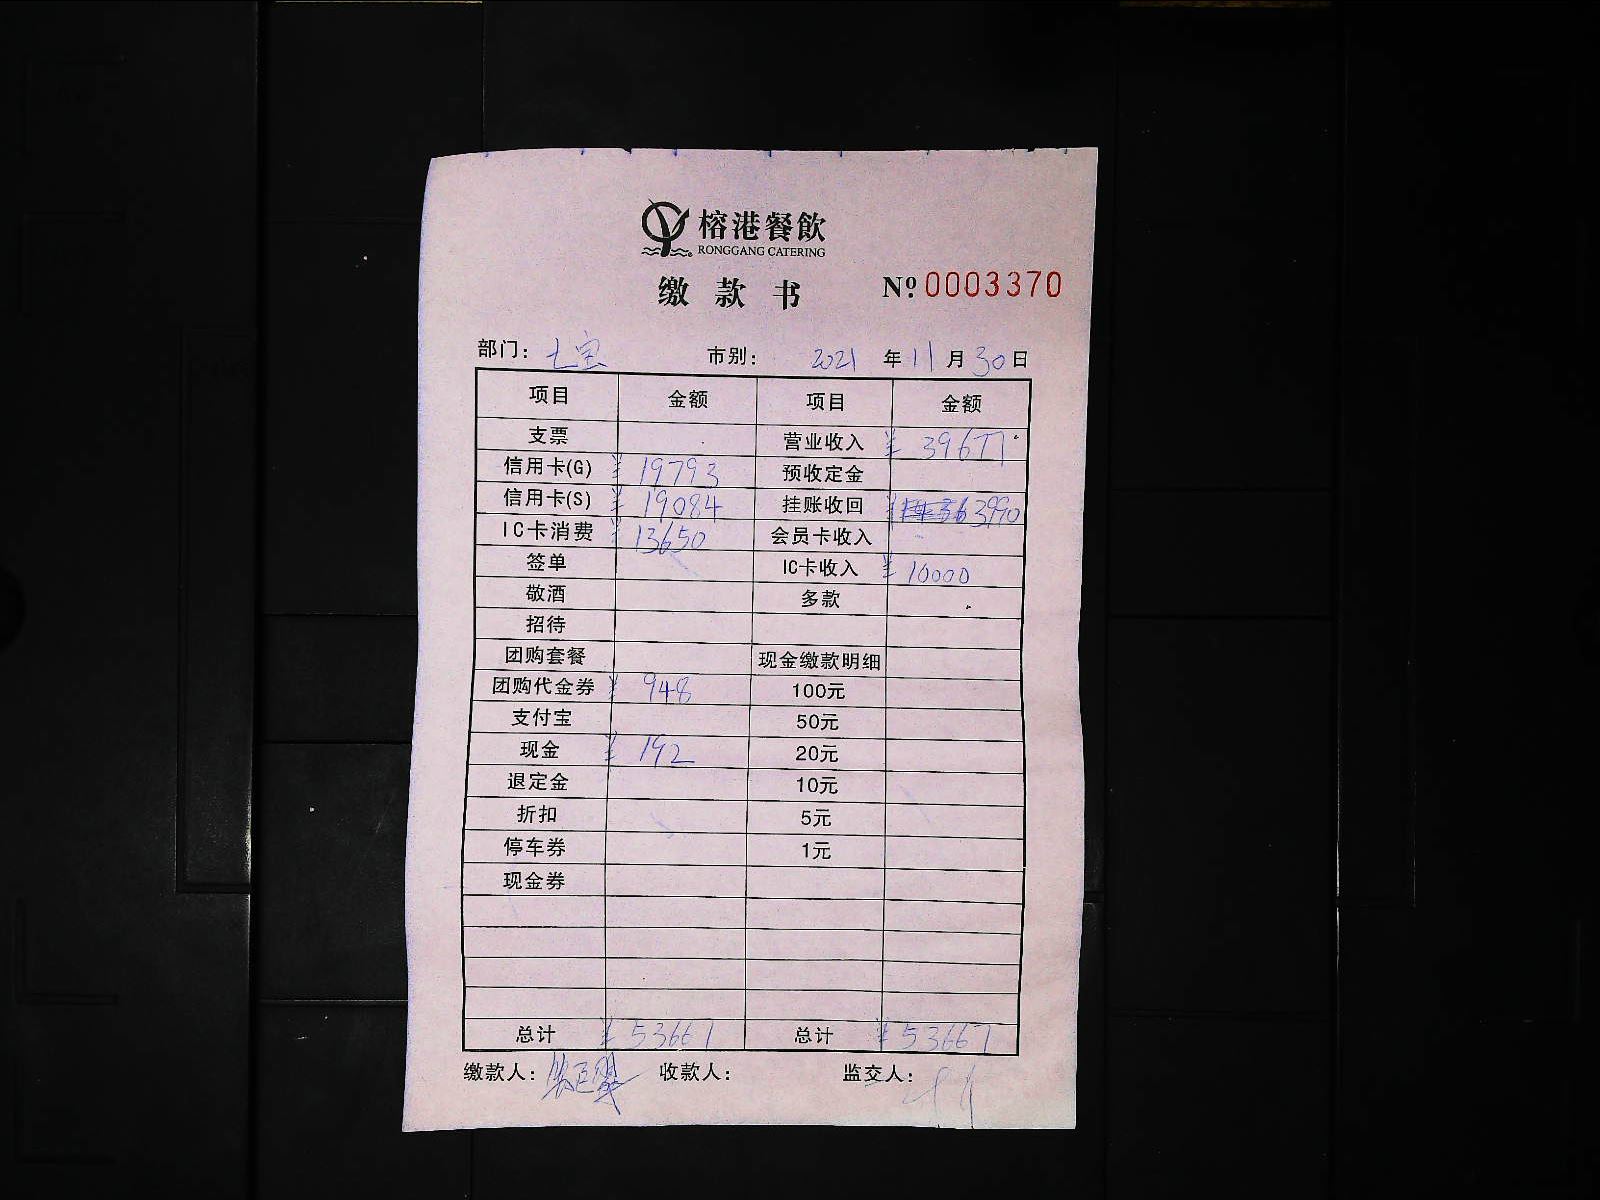 榕港餐飲
RONGGANG CATERING
缴款书 Nº 0003370
部门: 七宝 市别: 2021 年 11 月 30 日
项目 金额 项目 金额
支票 营业收入 ¥ 39677
信用卡(G) ¥ 19793 预收定金
信用卡(S) ¥ 19084 挂账收回 3990
IC卡消费 ¥ 13650 会员卡收入
签单 IC卡收入 ¥ 10000
敬酒 多款
招待
团购套餐 现金缴款明细
团购代金券 ¥ 948 100元
支付宝 50元
现金 ¥ 192 20元
退定金 10元
折扣 5元
停车券 1元
现金券
总计 ¥ 53667 总计 ¥ 53667
缴款人: 收款人: 监交人: